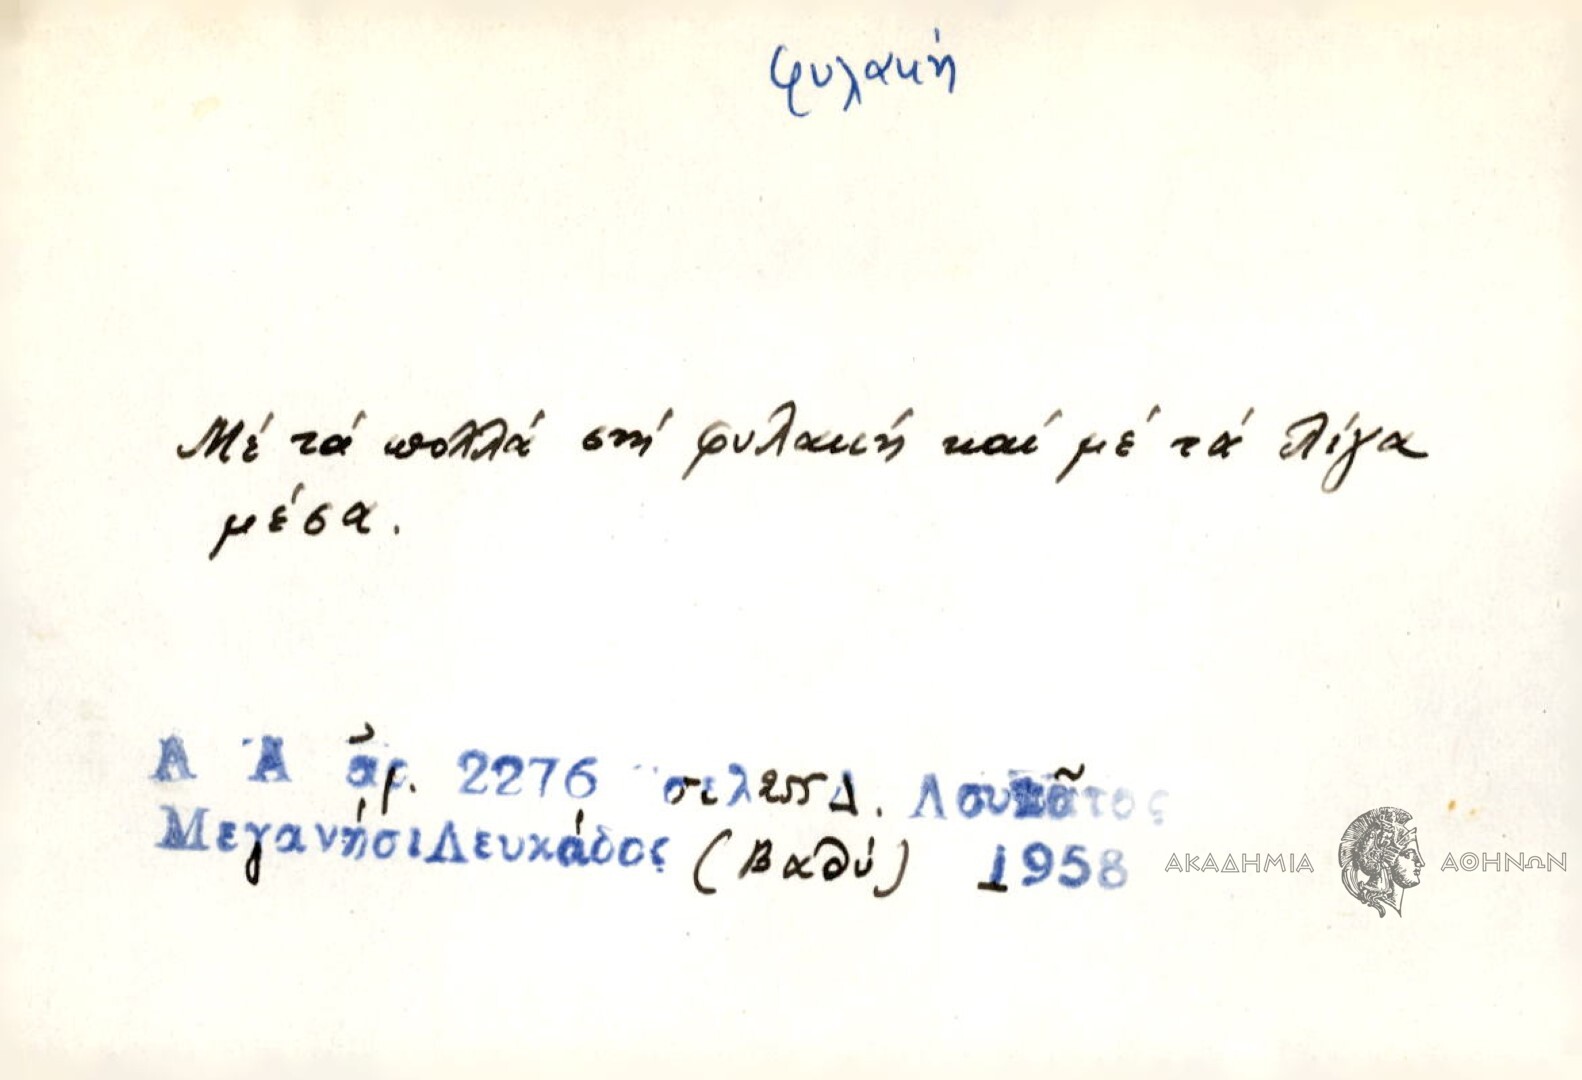 φυλακή
Μέ τά πολλά στή φυλακή καί μέ τά λίγα
μέσα.
Λ Α ἀρ. 2276 σελ Δ. Λουκᾶτος
Μεγανήσι Λευκάδος (Βαθύ) 1958
ΑΚΑΔΗΜΙΑ ΑΘΗΝΩΝ